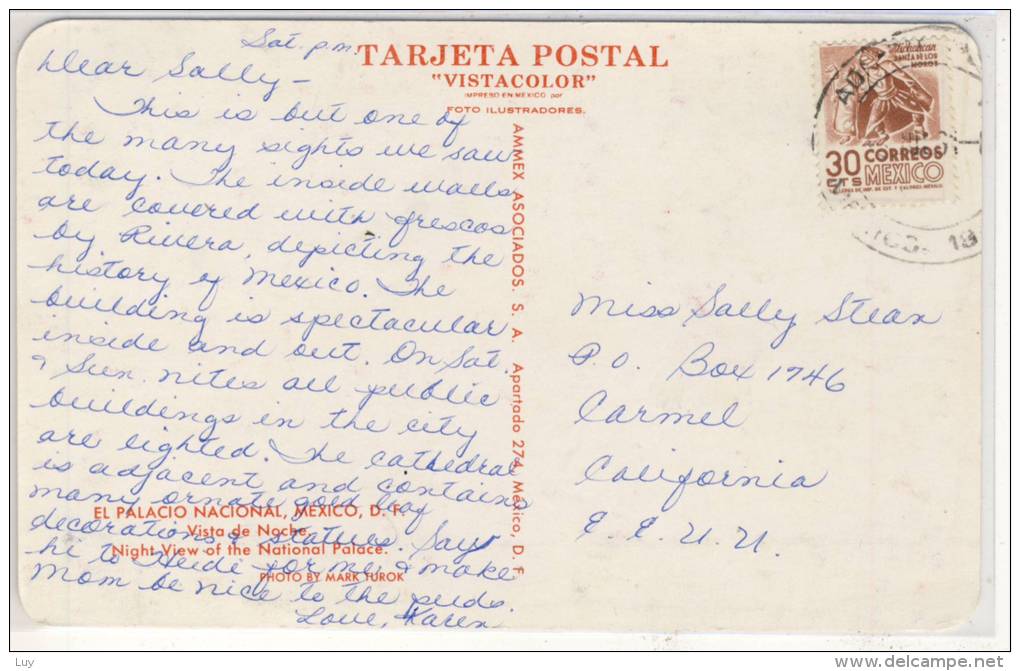 Sat. p.m.
Dear Sally –
This is but one of
the many sights we saw
today. The inside walls
are covered with frescos
by Rivera, depicting the
history of Mexico. The
building is spectacular
inside and out. On Sat.
& Sun. nites all public
buildings in the city
are lighted. The cathedral
is adjacent and contains
many ornate gold leaf
decorations & statues. Say
hi to Heidi for me, & make
Mom be nice to the
Love, Karen
EL PALACIO NACIONAL, MEXICO, D. F.
Vista de Noche.
Night View of the National Palace.
PHOTO BY MARK TUROK
TARJETA POSTAL
"VISTACOLOR"
IMPRESO EN MEXICO por
FOTO ILUSTRADORES.
AMMEX ASOCIADOS. S. A. Apartado 274, México, D. F.
Michoacan
DANZA DE LOS
MOROS
30 CORREOS
CTS MEXICO
TALLERES DE IMP. DE EST. Y VALORES-MEXICO
Miss Sally Stean
P.O. Box 1746
Carmel
California
E.E.U.U.
Luy